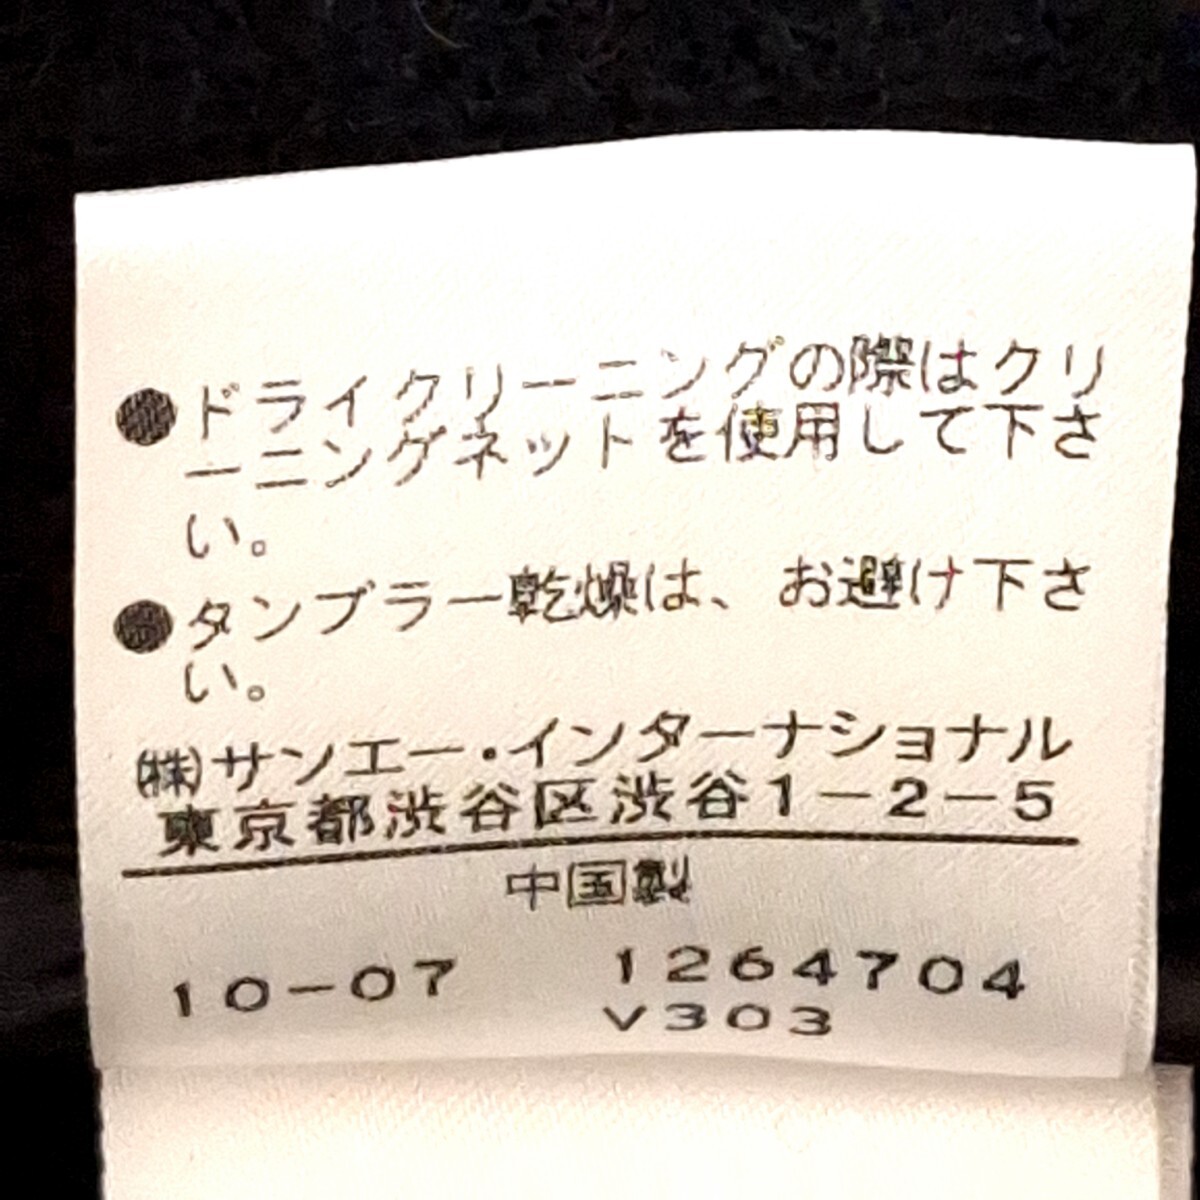 ●ドライクリーニングの際はクリ
ーニングネットを使用して下さ
い。
●タンブラー乾燥は、お避け下さ
い。
㈱サンエー・インターナショナル
東京都渋谷区渋谷1-2-5
中国製
10-07 1264704
V303